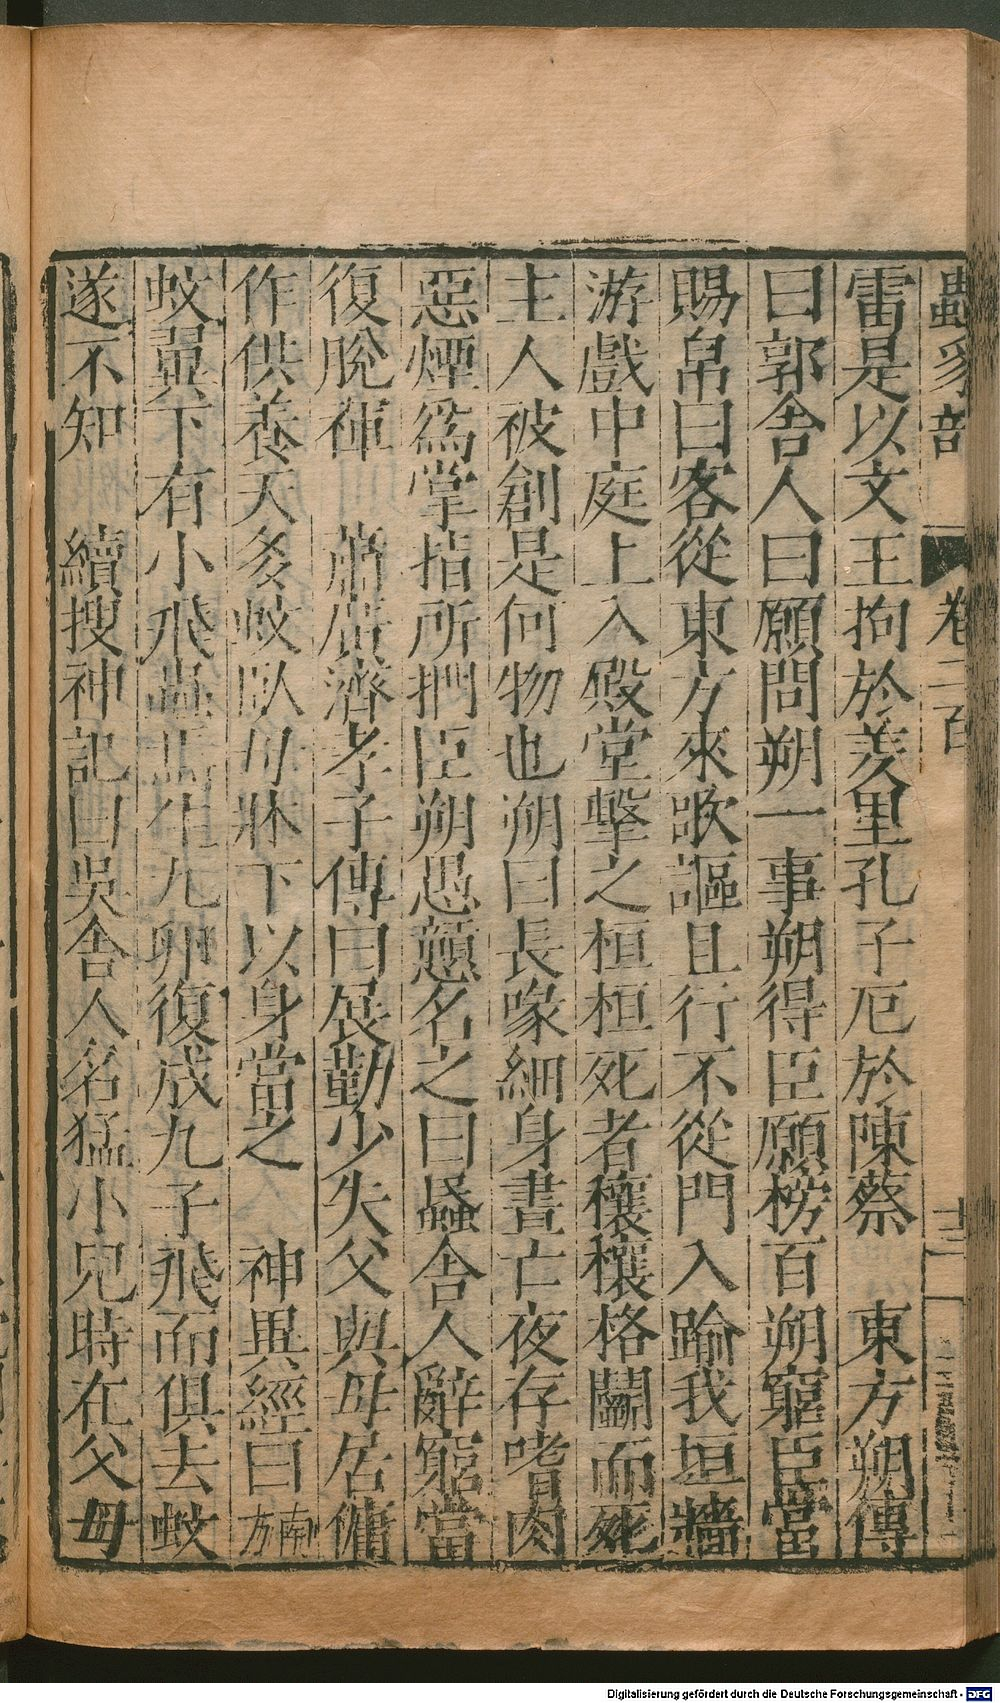 蟲豸部 卷二百 十三
雷是以文王拘於羑里孔子厄於陳蔡 東方朔傳
曰郭舍人曰願問朔一事朔得臣願榜百朔窮臣當
賜帛曰客從東方來歌謳且行不從門入踰我垣牆
游戲中庭上入殿堂擊之桓桓死者穰穰格鬬而死
主人被創是何物也朔曰長喙細身晝亡夜存嗜肉
惡煙爲掌指所捫臣朔愚戇名之曰蟁舍人辭窮當
復脫褌 蕭廣濟孝子傳曰展勤少失父與母居傭
作供養天多蚊臥母牀下以身當之 神異經曰南方
蚊翼下有小飛蟲焉生九卵復成九子飛而俱去蚊
遂不知 續搜神記曰吳舍人名猛小兒時在父母
Digitalisierung gefördert durch die Deutsche Forschungsgemeinschaft - DFG